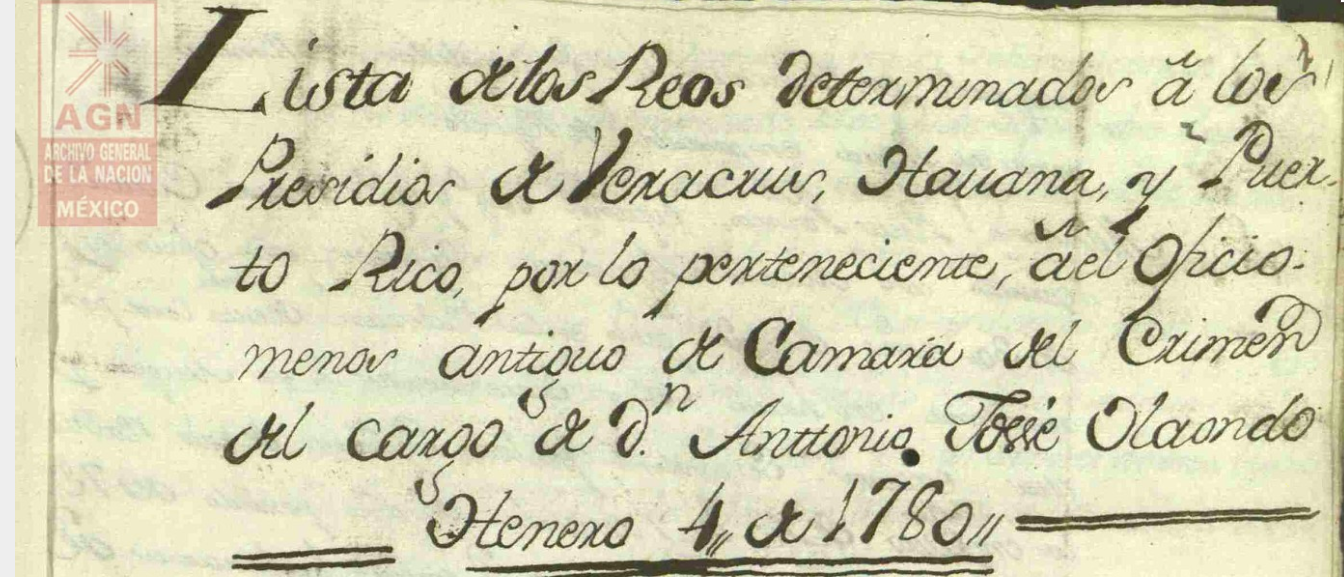 AGN
ARCHIVO GENERAL
DE LA NACION
MÉXICO
Lista de los Reos determinados â los
Presidios de Veracrus, Hauana, y Puer-
to Rico, por lo perteneciente, â el Oficio
menos antiguo de Camara del Crimen
del cargo de Dn. Anttonio Josse Olaondo
Henero 4,, de 1780,,